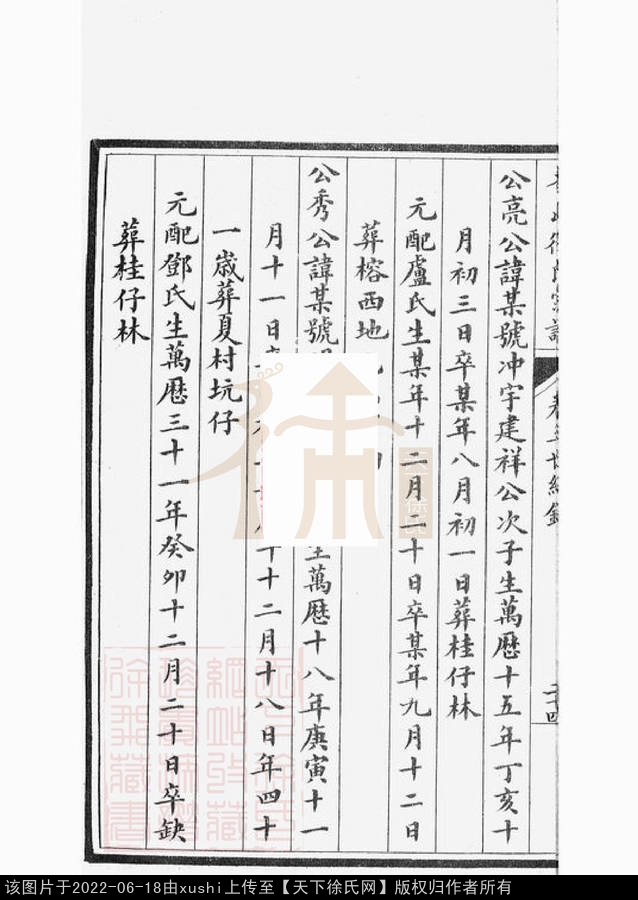 公亮公諱某號冲宇建祥公次子生萬曆十五年丁亥十
月初三日卒某年八月初一日葬桂仔林
元配盧氏生某年十二月二十日卒某年九月十二日
葬榕西地
公秀公諱某號
生萬曆十八年庚寅十一
月十一日
十二月十八日年四十
一歲葬夏村坑仔
元配鄧氏生萬曆三十一年癸卯十二月二十日卒缺
葬桂仔林
该图片于2022-06-18由xushi上传至【天下徐氏网】版权归作者所有